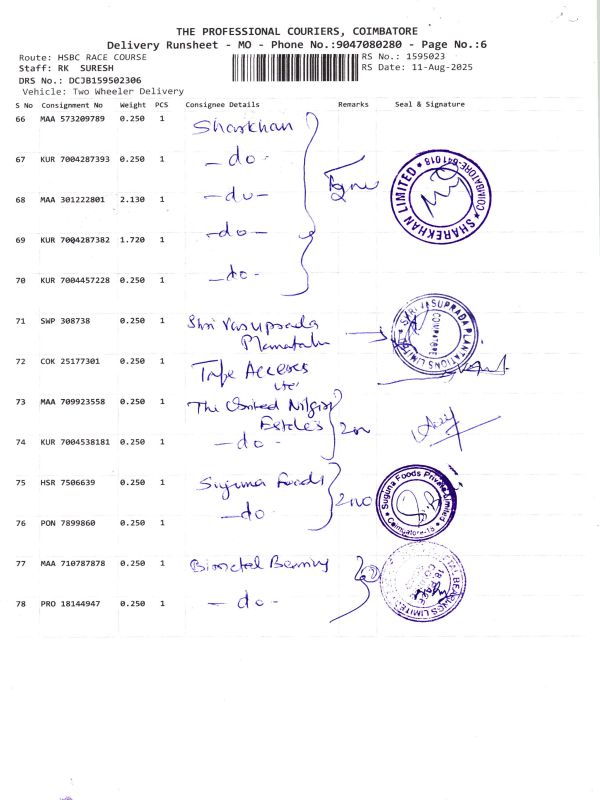 THE PROFESSIONAL COURIERS, COIMBATORE
Delivery Runsheet - MO - Phone No.:9047080280 - Page No.:6
Route: HSBC RACE COURSE
RS No.: 1595023
Staff: RK SURESH
RS Date: 11-Aug-2025
DRS No.: DCJB159502306
Vehicle: Two Wheeler Delivery
S No Consignment No Weight PCS Consignee Details Remarks Seal & Signature
66 MAA 573209789 0.250 1 Sharkhan
67 KUR 7004287393 0.250 1 -do-
68 MAA 301222801 2.130 1 -do-
69 KUR 7004287382 1.720 1 -do-
70 KUR 7004457228 0.250 1 -do-
SHAREKHAN LIMITED * COIMBATORE-641018 *
71 SWP 308738 0.250 1 Shri Vasuprada
SHRI VASUPRADA PLANTATIONS LIMITED
COIMBATORE
72 COK 25177301 0.250 1
73 MAA 709923558 0.250 1 The United Nilgiri
Estates
74 KUR 7004538181 0.250 1 -do-
75 HSR 7506639 0.250 1 Suguna Foods
76 PON 7899860 0.250 1 -do-
Suguna Foods Private Limited
Coimbatore-18
77 MAA 710787878 0.250 1 Bimetal Bearing
78 PRO 18144947 0.250 1 -do-
BEARINGS LIMITED